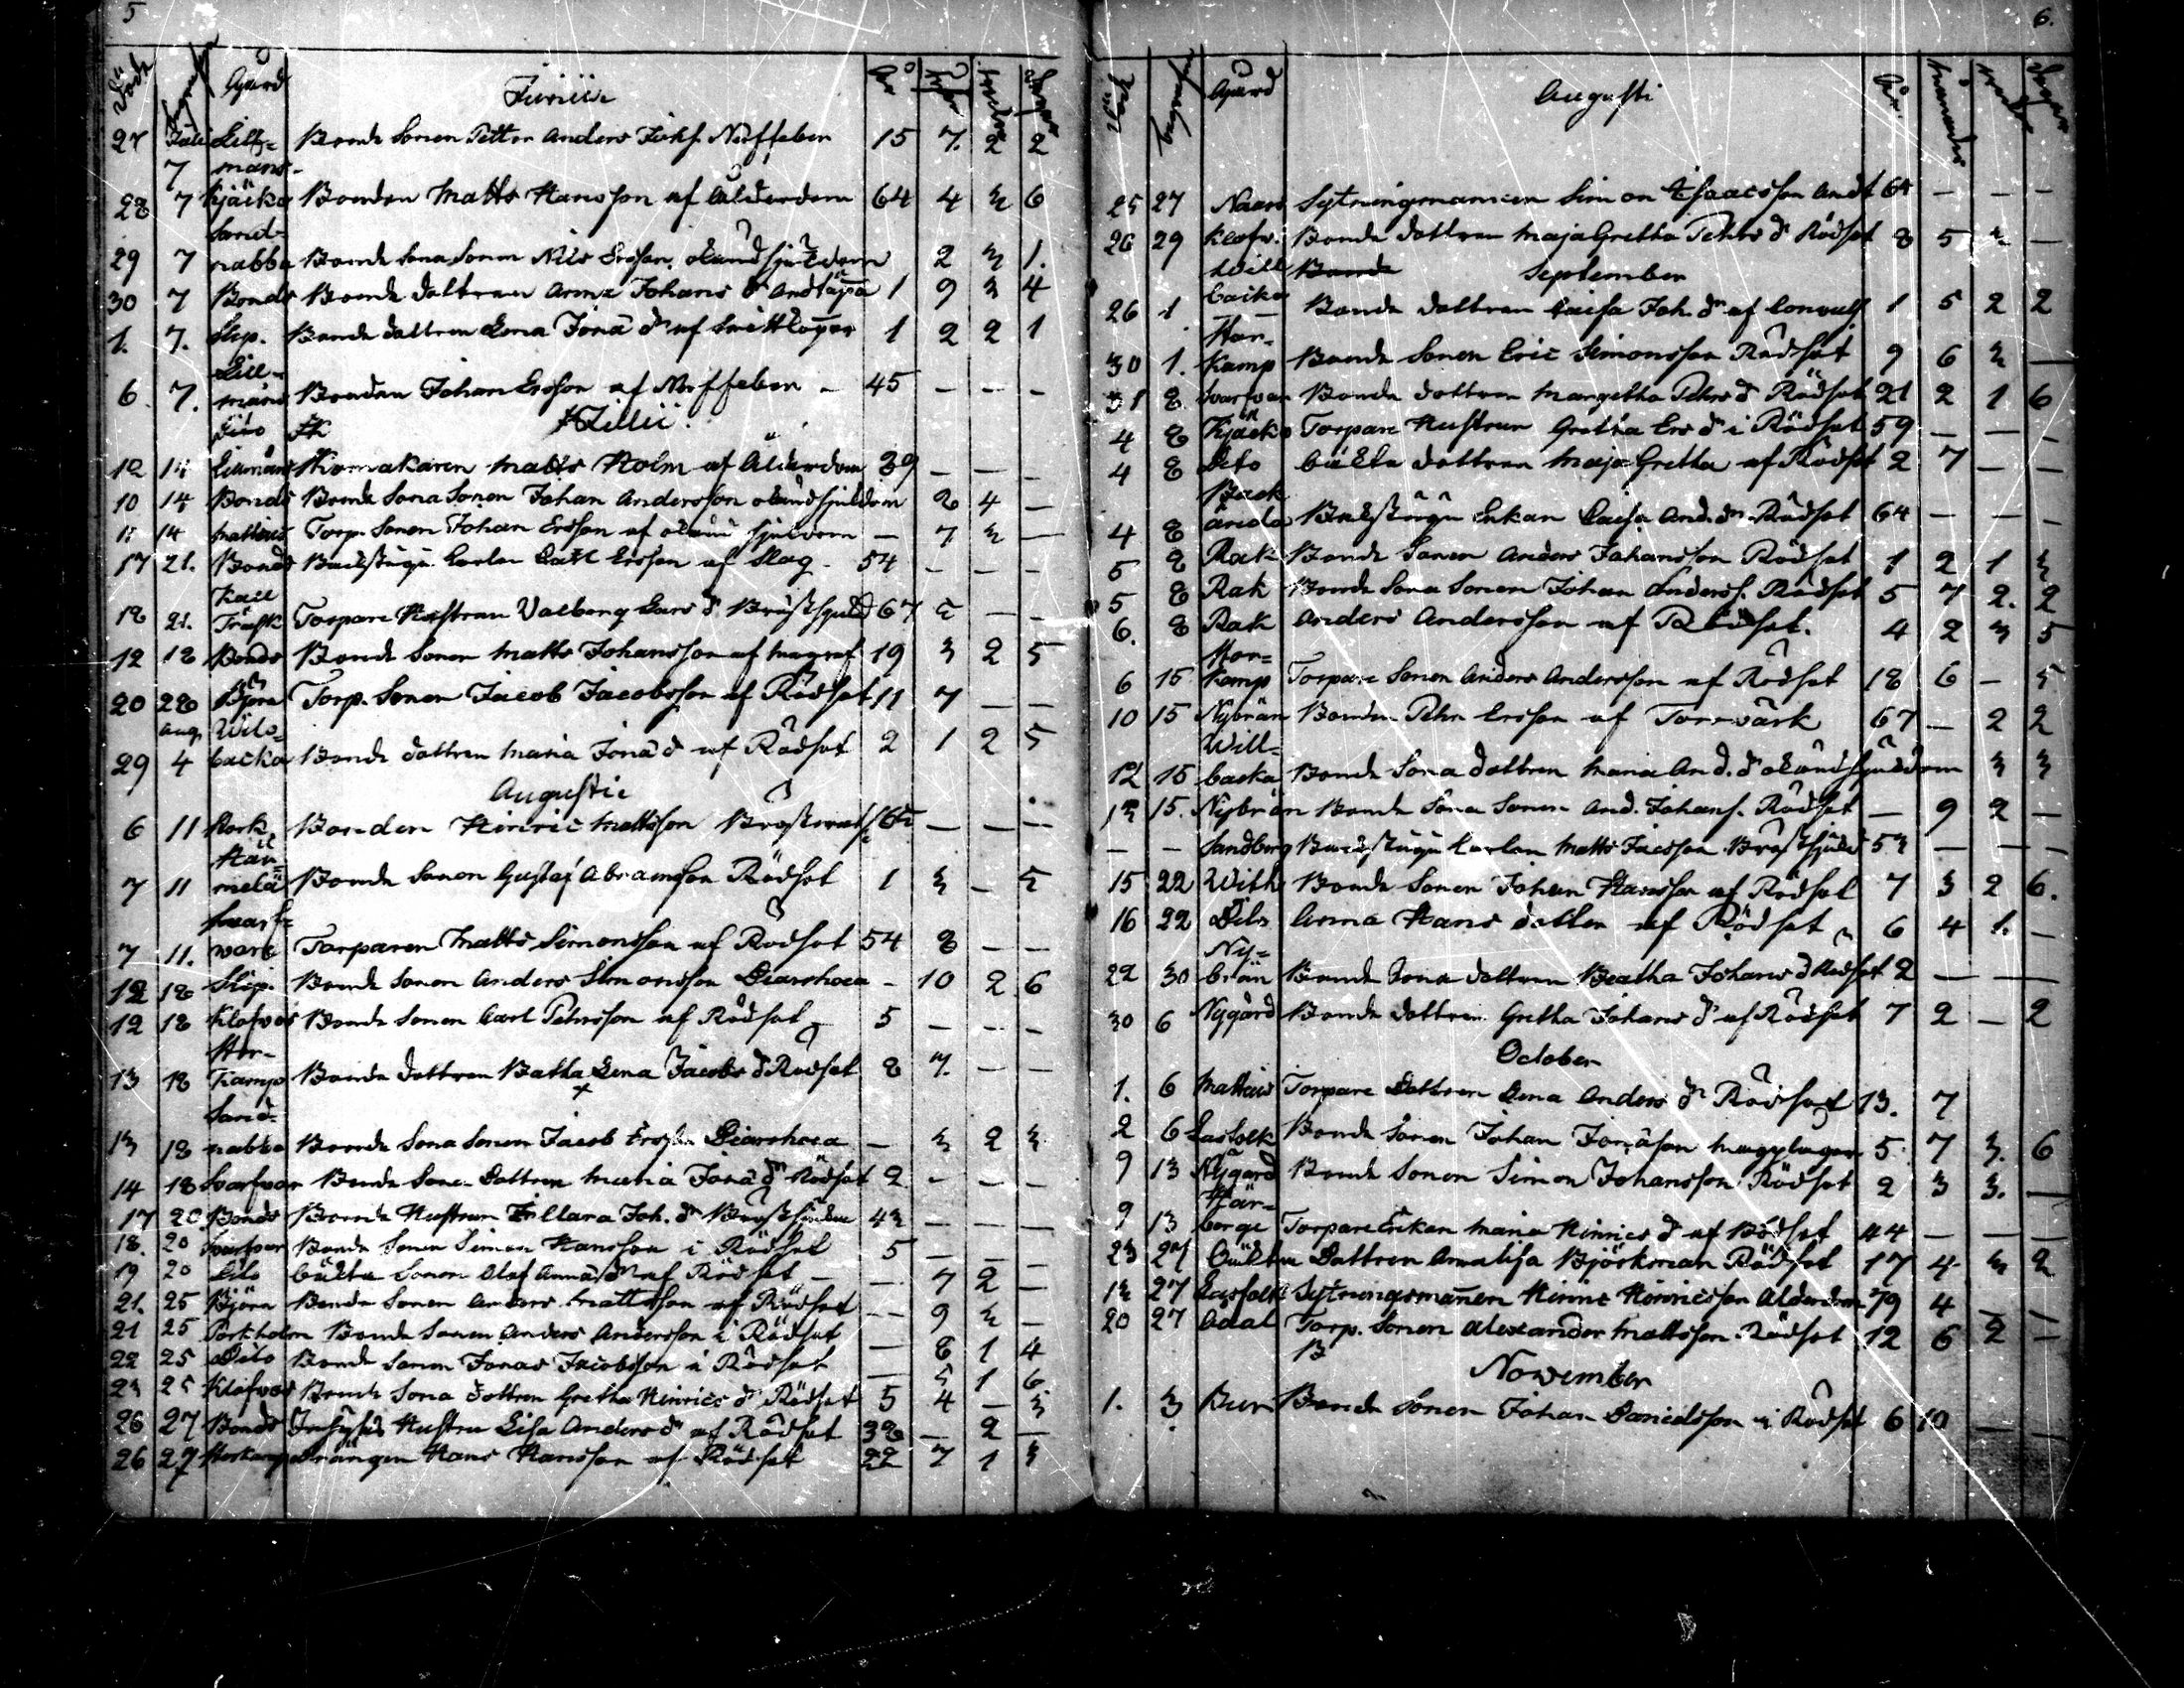 5
Död Begrafn Gård Junii År
27 Juli Lill- Bonde Sonen Petter Anders Nerffeber 15 7. 2 2
7 mans-
28 7 Kjäcko Bonden Matts Hansson af Ålderdom 64 4 3 6
Sand-
29 7 nabba Bonde Sona Sonen Nils Ersson okänd sjukdom 2 3 1.
30 7 Bonds Bonde dottren Anna Johans dr Andtäppa 1 9 3 4
1. 7. Slip. Bonde dottren Lena Jona dr af 1 2 2 1
Lill-
6 7. mans Bonden Johan Ersson af Nerffeber - 45 - - -
Julii
12 14 Lillmans Matts Holm af Ålderdom 89 - - -
10 14 Bonds Bonde Sona Sonen Johan Andersson okänd sjukdom 2 4 -
11 14 Mattens Torp. Sonen Johan Ersson af okänd sjukdom - 7 3 -
17 21. Bonds Backstugu Ersson af Slag - 54 - - -
Kail
18 21. Träsk Torpare Hustrun Valborg Lars dr Bröstsjukd 67 - -
12 18 Bonds Bonde Sonen Matts Johansson af 19 3 2 5
20 28 Björn Torp. Sonen Jacob Jacobsson af Rödsot 11 7 - -
Aug. Wils-
29 4 backa Bonde dottren Maria Jona d af Rödsot 2 1 2 5
Augusti
6 11 Bonden Hinric Mattsson - - -
7 11 Bonde Sonen Gustaf Abramsson Rödsot 1 3 - 5
Svarf-
7 11. ware Torparen Matts Simonsson af Rödsot 54 8 - -
12 18 Slip. Bonde Sonen Anders Simonsson Diarrhoea - 10 2 6
12 18 Klofvas Bonde Sonen Carl Pehrsson af Rödsot - 5 - - -
Stor-
13 18 Kamp Bonde dottren Batha Lena Jacobs dr Rödsot 8 7. - -
Sand-
13 18 nabba Bonde Sona Sonen Jacob Ersson Diarrhoea - 3 2 3
14 18 Svarfvar Bonde Sona Dottren Maria Jona dr Rödsot 2 - - -
17 20 Bonds Bonde Hustrun Joh. dr 43 - - -
18. 20 Svarfvar Bonde Sonen Simon Hansson i Rödsot 5 - - -
19 20 Dito oäkta Sonen Olof Anna dr af Rödsot - - 7 2 -
21. 25 Björn Bonde Sonen Anders Mattsson af Rödsot - 9 3 -
21 25 Porkholm Bonde Sonen Anders Andersson i Rödsot - 8 1 4
22 25 Dito Bonde Sonen Jonas Jacobsson i Rödsot - 5 1 6
23 25 Klofvas Bonde Sona dottren Gretha Hinrics dr Rödsot 5 4 - 3
26 27 Bonds Inhyses Hustru Lisa Anders dr af Rödsot 38 - 2 -
26 27 Storkamp Drängen Hans Hansson af Rödsot 22 7 1 3
6.
Död Begrafn Gård Augusti År. månader Dagar
25 27 Naars Sytningmannen Simon Isaacsson Andt 64 - - -
26 29 Klofv. Bonde dottren Maja Gretha Pehrs dr Rödsot 8 5 2 -
Will Bonde September
26 1 backa Bonde dottren Caisa Joh. dr af Convuls 1 5 2 2
Stor-
30 1. Kamp Bonde Sonen Eric Simonsson Rödsot 9 6 3 -
31 8 Svarfvar Bonde dottren Margetha Pehrs d Rödsot 21 2 1 6
4 8 Kjäcko Torpare Hustrun Gretha Ers dr i Rödsot 59 - - -
4 8 Dito oäkta dottren Maja Gretha af Rödsot 2 7 - -
Back
4 8 ända Backstugu Enkan Caisa And. dr Rödsot 64 - - -
5 8 Rak Bonde Sonen Anders Johansson Rödsot 1 2 1 3
5 8 Rak Bonde Sona Sonen Johan Anderss. Rödsot 5 7 2. 2
6. 8 Rak Anders Andersson af Rödsot. 4 2 3 5
Stor-
6 15 Kamp Torpare Sonen Anders Andersson af Rödsot 18 6 - 5
10 15 Nybrän Bonden Pehr Ersson af Torrvärk 67 - 2 2
Will-
12 15 backa Bonde Sona dottren Maria And. dr okänd sjukdom 3 3
13 15. Nybrän Bonde Sona Sonen And. Johans. Rödsot - 9 2 -
- - Sandberg Backstugu karlen Matts Bröstsjukd 53 - - -
15 22 With Bonde Sonen Johan Hansson af Rödsot 7 3 2 6.
16 22 Dito Anna Hans dotter af Rödsot 6 4 1. -
Ny-
22 30 brän Bonde Sona dottren Beatha Johans d Rödsot 2 - -
30 6 Nygård Bonde dottren Gretha Johans dr af Rödsot 7 2 - 2
October
1. 6 Mattens Torpare Dottren Lena Anders dr Rödsot 13. 7
2 6 Lasfolk Bonde Sonen Johan Jonasson magplågor 5 7 3. 6
9 13 Nygård Bonde Sonen Simon Johansson Rödsot 2 3 3. -
Här-
9 13 berge Torpare Enkan Maria Hinrics d af Rödsot 44 - - -
23 27 Oäkta Dottren Annalisa Björkman Rödsot 17 4 3 2
13 27 Lasfolk Sytningsmannen Hinric Hinricsson Ålderdom 79 4 - -
20 27 Adal Torp. Sonen Alexander Mattsson Rödsot 12 6 2 -
B
November
1. 3 Bur Bonde Sonen Johan Danielsson i Rödsot 6 10 - -